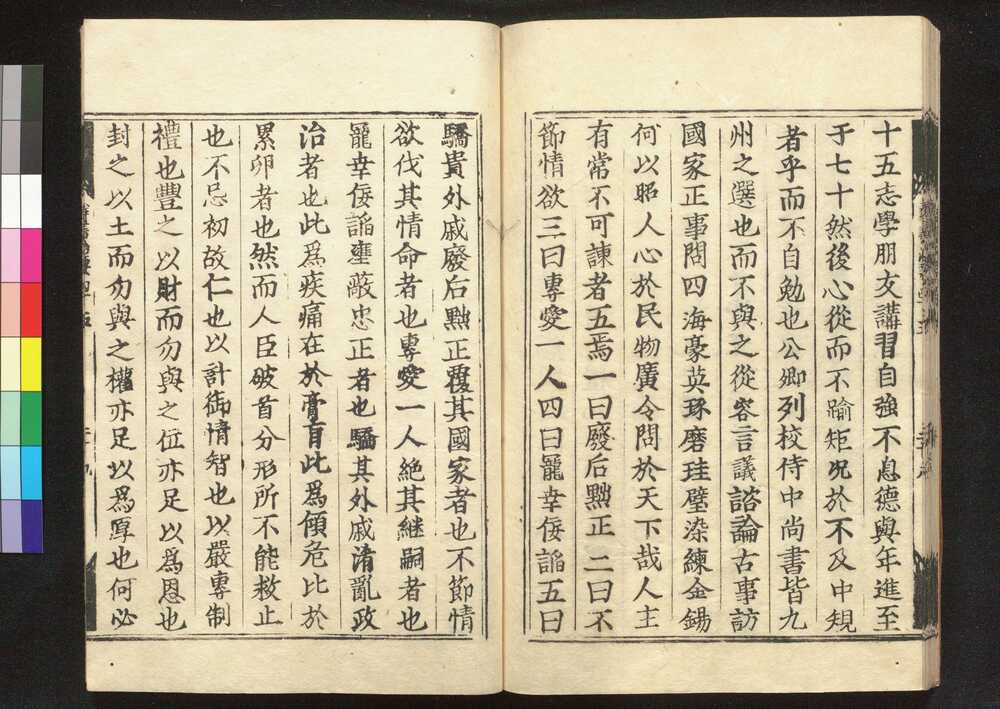 十五志學朋友講習自強不息德與年進至
于七十然後心從而不踰矩況於不及中規
者乎而不自勉也公卿列校侍中尚書皆九
州之選也而不與之從容言議諮論古事訪
國家正事問四海豪英琢磨珪璧染練金錫
何以昭人心於民物廣令問於天下哉人主
有常不可諫者五焉一曰廢后黜正二曰不
節情欲三曰專愛一人四曰寵幸佞諂五曰
驕貴外戚廢后黜正覆其國家者也不節情
欲伐其情命者也專愛一人絕其継嗣者也
寵幸佞諂壅蔽忠正者也驕其外戚淆亂政
治者也此爲疾痛在於膏肓此爲傾危比於
累卵者也然而人臣破首分形所不能救止
也不忌初故仁也以計御情智也以嚴專制
禮也豐之以財而勿與之位亦足以爲恩也
封之以土而勿與之權亦足以爲厚也何必